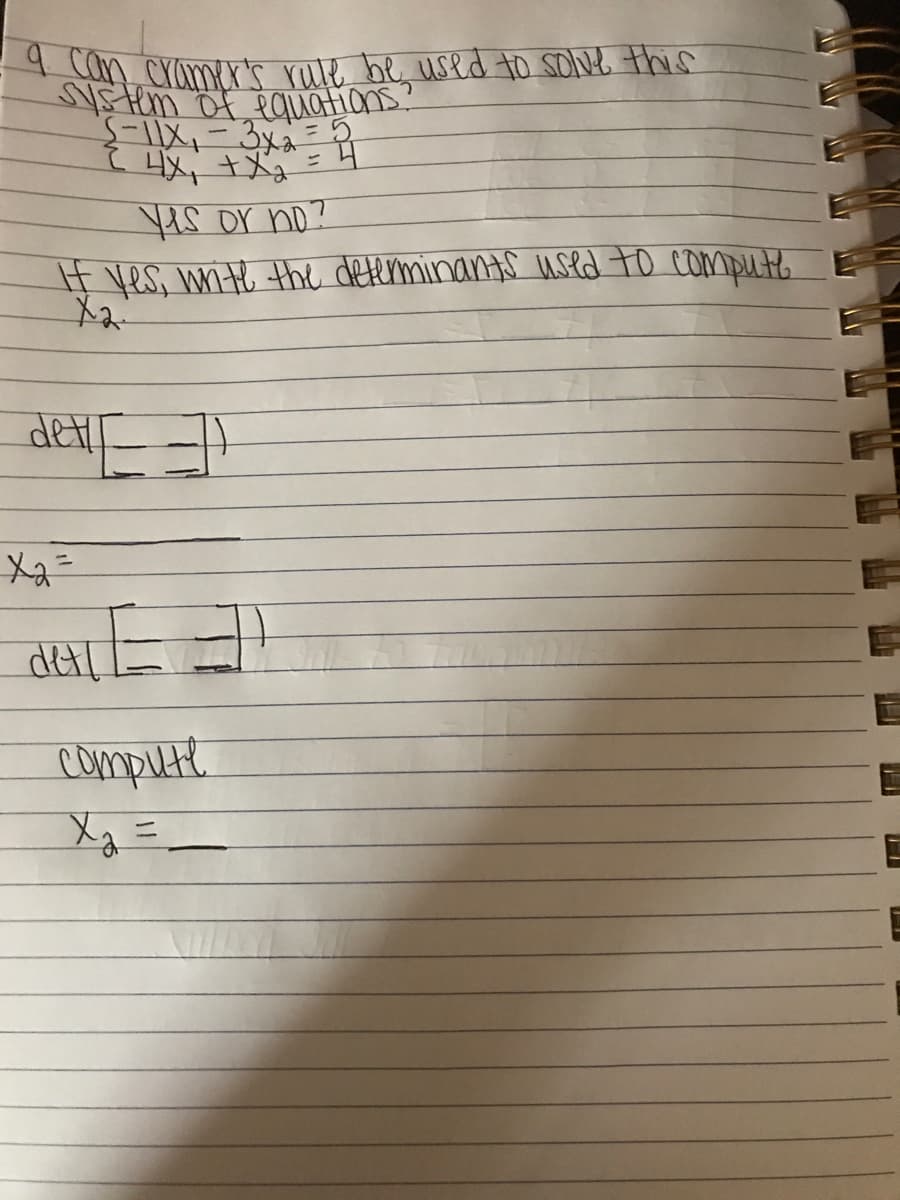 9 can cramer's rule be used to solve this
system of equations?
{-11X₁ - 3x₂ = 5
{ 4X₁ + X₂ = 4
Yes or no?
If yes, write the determinants used to compute
X₂.
det([_ _])
[_ _]
X₂ =
det([_ _])
[_ _]
compute
X₂ = _